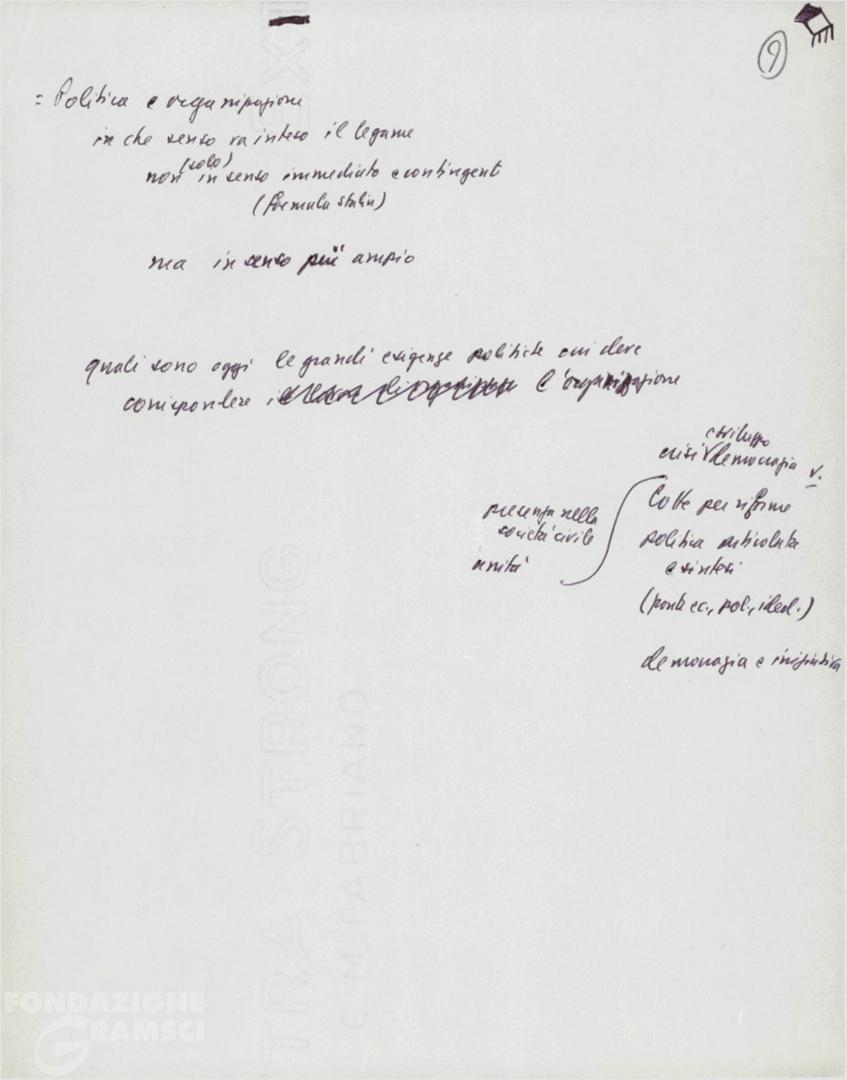 9
= Politica e organizzazione
in che senso va inteso il legame
(solo)
non in senso immediato e contingente
(formula Stalin)
ma in senso più ampio
quali sono oggi le grandi esigenze politiche cui deve
corrispondere l'organizzazione
e sviluppo
crisi democrazia v.
lotte per riforme
presenza nella
società civile
politica articolata
e sintesi
unità
(fronte ec., pol., ideol.)
democrazia e iniziativa
EXTRA STRONG
C.M. FABRIANO
FONDAZIONE
GRAMSCI